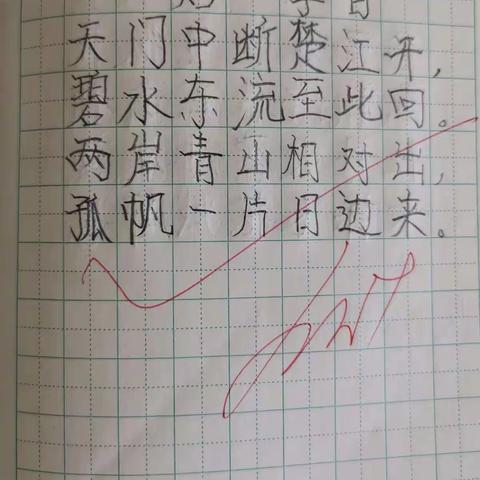 天门中断楚江开，
碧水东流至此回。
两岸青山相对出，
孤帆一片日边来。